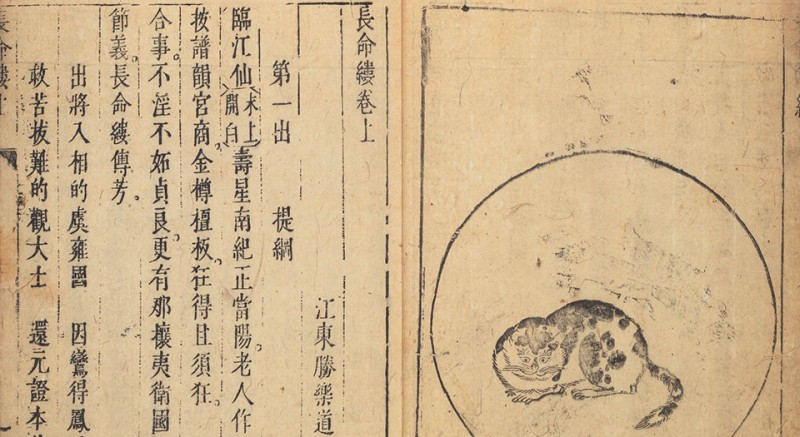 長命縷卷上
江東勝樂道
第一出 提綱
臨江仙 末上開白 壽星南紀正當陽。老人作
按譜韻宮商。金樽檀板。狂得且須狂。
合事。不淫不妬貞良。更有那攘夷衛國
節義。長命縷傳芳。
出將入相的虞雍國 因鸞得鳳
救苦拔難的觀大士 還元證本
長命縷上